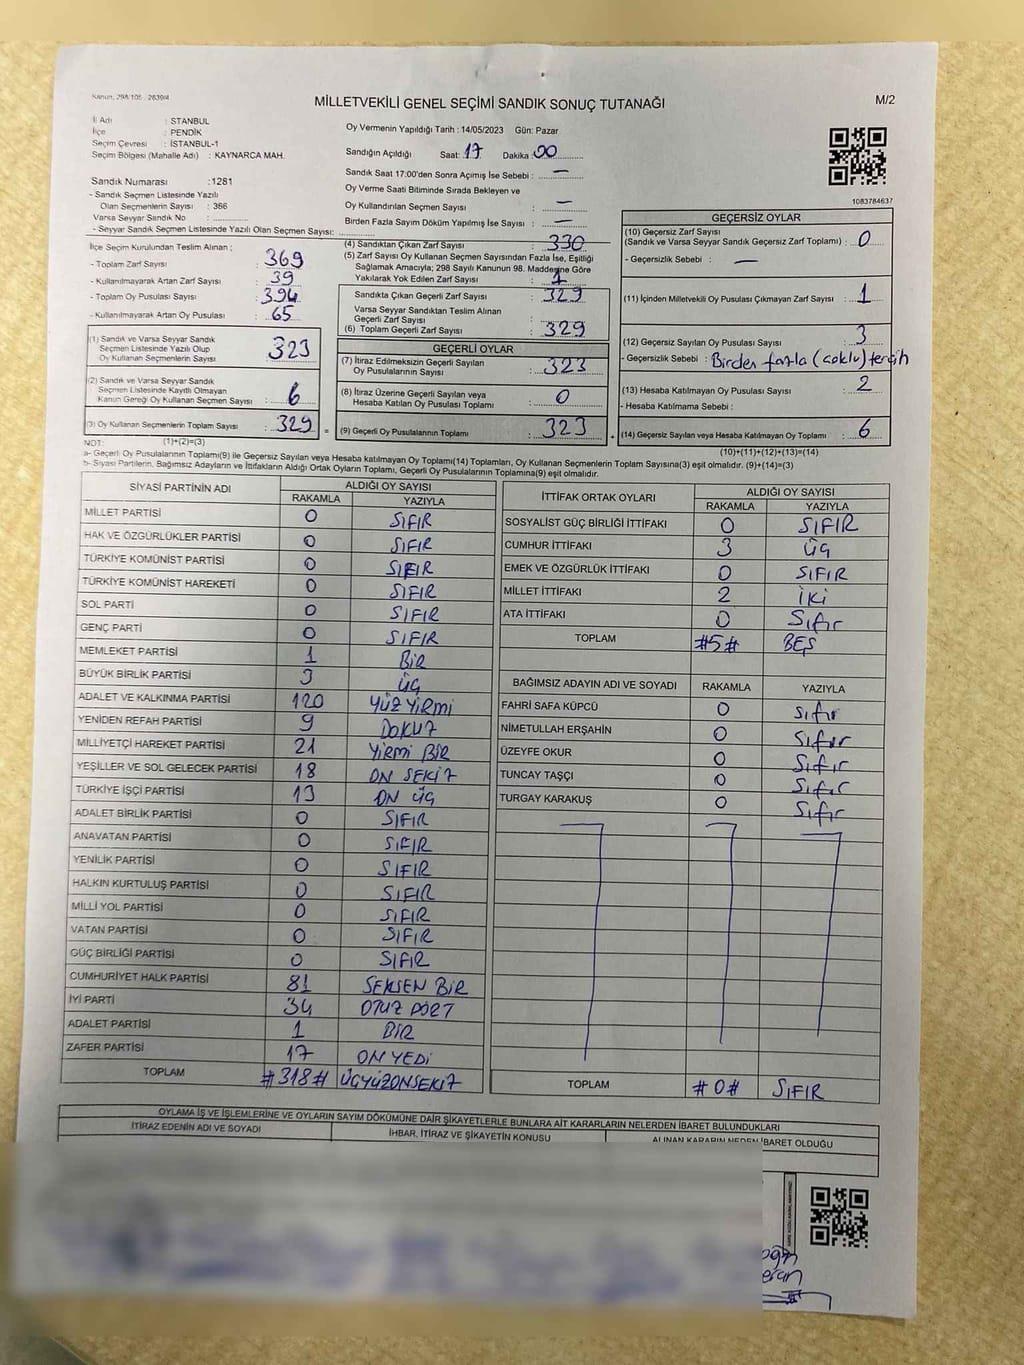 Kanun, 298/105 , 2839/4
MİLLETVEKİLİ GENEL SEÇİMİ SANDIK SONUÇ TUTANAĞI
M/2
İl Adı : STANBUL
İlçe : PENDİK
Seçim Çevresi : İSTANBUL-1
Seçim Bölgesi (Mahalle Adı) : KAYNARCA MAH.
Oy Vermenin Yapıldığı Tarih : 14/05/2023 Gün: Pazar
Sandığın Açıldığı Saat: 17 Dakika : 00
Sandık Saat 17:00'den Sonra Açımış İse Sebebi : —
Oy Verme Saati Bitiminde Sırada Bekleyen ve
Oy Kullandırılan Seçmen Sayısı : —
Birden Fazla Sayım Döküm Yapılmış İse Sayısı : —
1083784637
Sandık Numarası :1281
- Sandık Seçmen Listesinde Yazılı
Olan Seçmenlerin Sayısı : 366
Varsa Seyyar Sandık No :
- Seyyar Sandık Seçmen Listesinde Yazılı Olan Seçmen Sayısı:
İlçe Seçim Kurulundan Teslim Alınan ;
- Toplam Zarf Sayısı : 369
- Kullanılmayarak Artan Zarf Sayısı : 39
- Toplam Oy Pusulası Sayısı : 394
- Kullanılmayarak Artan Oy Pusulası : 65
(1) Sandık ve Varsa Seyyar Sandık
Seçmen Listesinde Yazılı Olup
Oy Kullanan Seçmenlerin Sayısı : 323
(2) Sandık ve Varsa Seyyar Sandık
Seçmen Listesinde Kayıtlı Olmayan
Kanun Gereği Oy Kullanan Seçmen Sayısı : 6
(3) Oy Kullanan Seçmenlerin Toplam Sayısı : 329
(4) Sandıktan Çıkan Zarf Sayısı : 330
(5) Zarf Sayısı Oy Kullanan Seçmen Sayısından Fazla İse, Eşitliği
Sağlamak Amacıyla; 298 Sayılı Kanunun 98. Maddesine Göre
Yakılarak Yok Edilen Zarf Sayısı : 1
Sandıkta Çıkan Geçerli Zarf Sayısı : 329
Varsa Seyyar Sandıktan Teslim Alınan
Geçerli Zarf Sayısı :
(6) Toplam Geçerli Zarf Sayısı : 329
GEÇERLİ OYLAR
(7) İtiraz Edilmeksizin Geçerli Sayılan
Oy Pusulalarının Sayısı : 323
(8) İtiraz Üzerine Geçerli Sayılan veya
Hesaba Katılan Oy Pusulası Toplamı : 0
= (9) Geçerli Oy Pusulalarının Toplamı : 323
GEÇERSİZ OYLAR
(10) Geçersiz Zarf Sayısı
(Sandık ve Varsa Seyyar Sandık Geçersiz Zarf Toplamı) : 0
- Geçersizlik Sebebi : —
(11) İçinden Milletvekili Oy Pusulası Çıkmayan Zarf Sayısı : 1
(12) Geçersiz Sayılan Oy Pusulası Sayısı : 3
- Geçersizlik Sebebi : Birden fazla (çoklu) tercih
(13) Hesaba Katılmayan Oy Pusulası Sayısı : 2
- Hesaba Katılmama Sebebi :
+ (14) Geçersiz Sayılan veya Hesaba Katılmayan Oy Toplamı : 6
NOT: (1)+(2)=(3)
(10)+(11)+(12)+(13)=(14)
a- Geçerli Oy Pusulalarının Toplamı(9) ile Geçersiz Sayılan veya Hesaba Katılmayan Oy Toplamı(14) Toplamları, Oy Kullanan Seçmenlerin Toplam Sayısına(3) eşit olmalıdır. (9)+(14)=(3)
b- Siyasi Partilerin, Bağımsız Adayların ve İttifakların Aldığı Ortak Oyların Toplamı, Geçerli Oy Pusulalarının Toplamına(9) eşit olmalıdır.
SİYASİ PARTİNİN ADI ALDIĞI OY SAYISI
RAKAMLA YAZIYLA
MİLLET PARTİSİ 0 SIFIR
HAK VE ÖZGÜRLÜKLER PARTİSİ 0 SIFIR
TÜRKİYE KOMÜNİST PARTİSİ 0 SIFIR
TÜRKİYE KOMÜNİST HAREKETİ 0 SIFIR
SOL PARTİ 0 SIFIR
GENÇ PARTİ 0 SIFIR
MEMLEKET PARTİSİ 1 BİR
BÜYÜK BİRLİK PARTİSİ 3 ÜÇ
ADALET VE KALKINMA PARTİSİ 120 YÜZ YİRMİ
YENİDEN REFAH PARTİSİ 9 DOKUZ
MİLLİYETÇİ HAREKET PARTİSİ 21 YİRMİ BİR
YEŞİLLER VE SOL GELECEK PARTİSİ 18 ON SEKİZ
TÜRKİYE İŞÇİ PARTİSİ 13 ON ÜÇ
ADALET BİRLİK PARTİSİ 0 SIFIR
ANAVATAN PARTİSİ 0 SIFIR
YENİLİK PARTİSİ 0 SIFIR
HALKIN KURTULUŞ PARTİSİ 0 SIFIR
MİLLİ YOL PARTİSİ 0 SIFIR
VATAN PARTİSİ 0 SIFIR
GÜÇ BİRLİĞİ PARTİSİ 0 SIFIR
CUMHURİYET HALK PARTİSİ 81 SEKSEN BİR
İYİ PARTİ 34 OTUZ DÖRT
ADALET PARTİSİ 1 BİR
ZAFER PARTİSİ 17 ON YEDİ
TOPLAM #318# ÜÇYÜZONSEKİZ
İTTİFAK ORTAK OYLARI ALDIĞI OY SAYISI
RAKAMLA YAZIYLA
SOSYALİST GÜÇ BİRLİĞİ İTTİFAKI 0 SIFIR
CUMHUR İTTİFAKI 3 ÜÇ
EMEK VE ÖZGÜRLÜK İTTİFAKI 0 SIFIR
MİLLET İTTİFAKI 2 İKİ
ATA İTTİFAKI 0 Sıfır
TOPLAM #5# BEŞ
BAĞIMSIZ ADAYIN ADI VE SOYADI RAKAMLA YAZIYLA
FAHRİ SAFA KÜPCÜ 0 sıfır
NİMETULLAH ERŞAHİN 0 Sıfır
ÜZEYFE OKUR 0 Sıfır
TUNCAY TAŞÇI 0 Sıfır
TURGAY KARAKUŞ 0 Sıfır
TOPLAM #0# SIFIR
OYLAMA İŞ VE İŞLEMLERİNE VE OYLARIN SAYIM DÖKÜMÜNE DAİR ŞİKAYETLERLE BUNLARA AİT KARARLARIN NELERDEN İBARET BULUNDUKLARI
İTİRAZ EDENİN ADI VE SOYADI İHBAR, İTİRAZ VE ŞİKAYETİN KONUSU ALINAN KARARIN NEDEN İBARET OLDUĞU